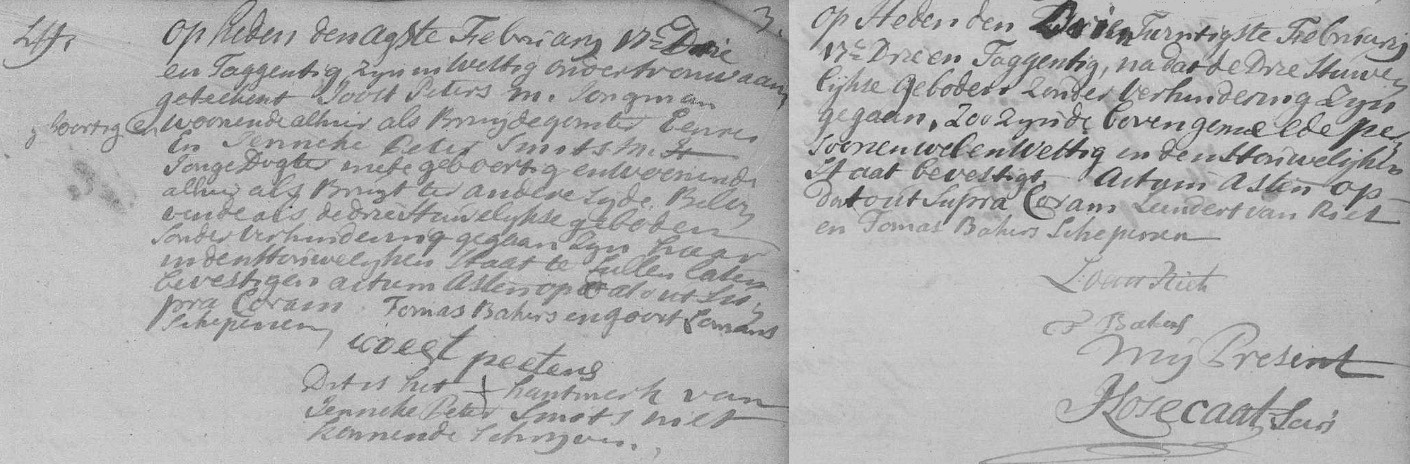 3.
Op heden den agste Februarij 17c Drie
en Taggentig zyn in Wettig ondertrouw aan
geteekent Joost Peters m. Jongman
geboortig en Woonende alhier als Bruydegomter Eenre
En Jenneke Peter Smots m.
Jonge Dogter mede geboortig en woonende
alhier als Bruyt ter andere zyde. Belo
vende als de drie Houwelykse geboden
sonder Verhindering gegaan zyn haar
in den Houwelyken Staat te sullen laten
bevestigen actum Asten op datout Su
pra Coram Tomas Bakers en goort Lomans
Schepenen
ioest peetens
Dit is het hantmerk van
Jenneke Peter Smots niet
kennende Schryven.
Op Heden den Drieen Twintigste Februarij
17c Drie en Taggentig, na dat de Drie Houwe
lykse geboden zonder Verhindering zyn
gegaan, zoo zyn de bovengemelde pe
rsoonen wel en Wettig in den Houwelyken
Staat bevestigt Actum Asten op
datout Supra Coram Leendert van Riet
en Tomas Bakers Schepenen
L van Riet
T Bakers
Mij Present
Losecaat Secris